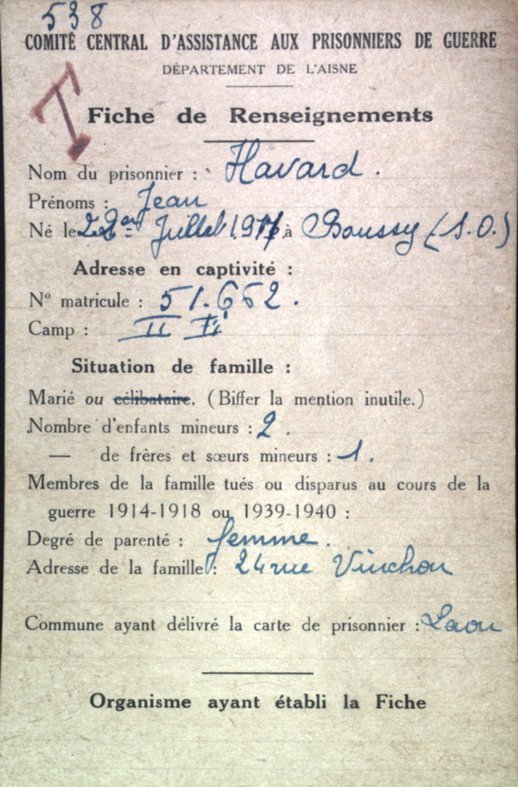 538
COMITÉ CENTRAL D'ASSISTANCE AUX PRISONNIERS DE GUERRE
DÉPARTEMENT DE L'AISNE
T
Fiche de Renseignements
Nom du prisonnier : Havard.
Prénoms : Jean
Né le Juillet 19 à Boussy (S.O.)
Adresse en captivité :
N° matricule : 51.652.
Camp : II
Situation de famille :
Marié ou célibataire. (Biffer la mention inutile.)
Nombre d'enfants mineurs : 2.
— de frères et sœurs mineurs : 1.
Membres de la famille tués ou disparus au cours de la
guerre 1914-1918 ou 1939-1940 :
Degré de parenté : femme.
Adresse de la famille : 24 rue Vinchon
Commune ayant délivré la carte de prisonnier : Laon
Organisme ayant établi la Fiche